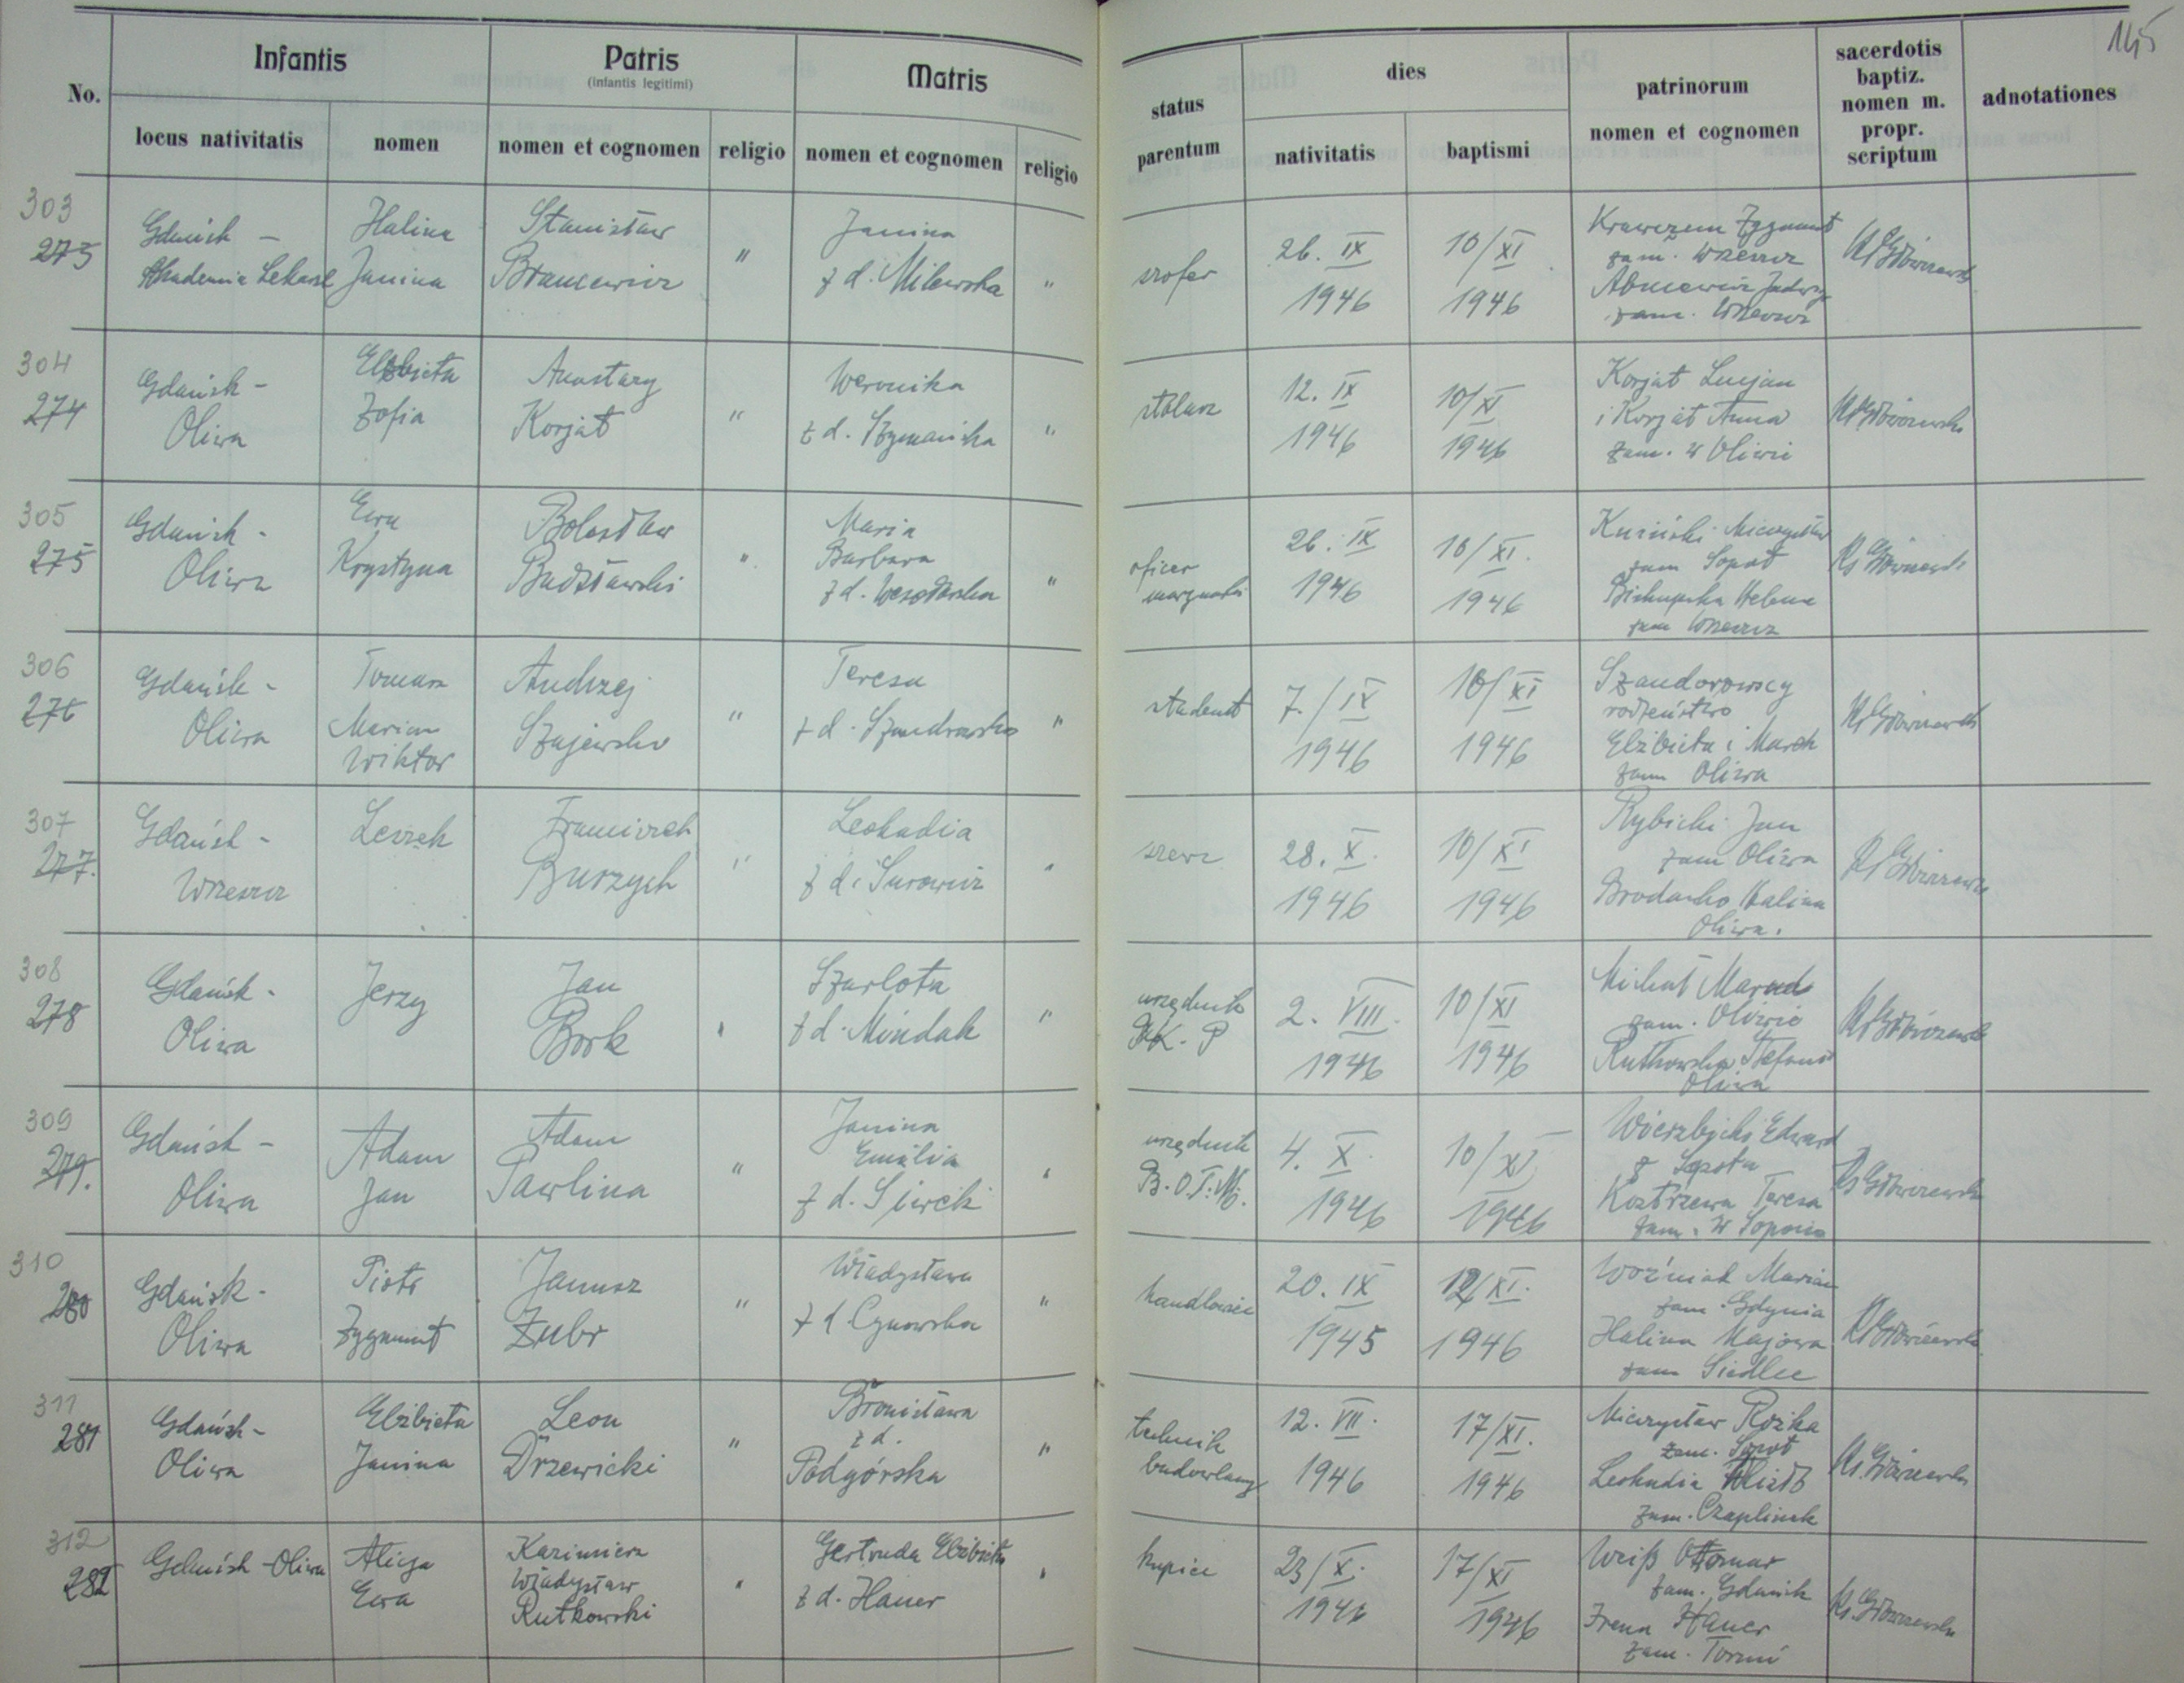 145
Infantis
Patris
(infantis legitimi)
Matris
status
parentum
dies
patrinorum
nomen et cognomen
sacerdotis
baptiz.
nomen m.
propr.
scriptum
adnotationes
No.
locus nativitatis
nomen
nomen et cognomen
religio
nomen et cognomen
religio
nativitatis
baptismi
303
273
Gdańsk -
Akademia Lekarsk
Halina
Janina
Stanisław
"
Janina
z d. Milewska
"
szofer
26. IX
1946
10/XI
1946
Krawczun Zygmunt
zam. Wrzeszcz
Jadwig
zam. Wrzeszcz
304
274
Gdańsk -
Oliwa
Elżbieta
Zofia
Anastazy
Korjat
"
Weronika
z d. Szymańska
"
stolarz
12. IX
1946
10/XI
1946
Korjat Lucjan
i Korjat Anna
zam. w Oliwie
305
275
Gdańsk -
Oliwa
Ewa
Krystyna
Bolesław
Budzławski
"
Maria
Barbara
z d. Wesołowska
"
oficer
marynarki
26. IX
1946
10/XI.
1946
Kuziński Mieczysław
zam Sopot
Biskupska Helena
zam Wrzeszcz
306
276
Gdańsk -
Oliwa
Tomasz
Marian
Wiktor
Andrzej
Szajewski
"
Teresa
z d. Szandrowska
"
student
7./IX
1946
10/XI
1946
Szandorowscy
rodzeństwo
Elżbieta i Marek
zam Oliwa
307
277.
Gdańsk -
Wrzeszcz
Leszek
Franciszek
Burzych
"
Leokadia
z d. Surowiec
"
szewc
28. X.
1946
10/XI
1946
Rybicki Jan
zam Oliwa
Halina
Oliwa.
308
278
Gdańsk -
Oliwa
Jerzy
Jan
Bork
"
Szarlota
z d. Mindak
"
urzędnik
P.K.P
2. VIII.
1946
10/XI
1946
Michał
zam. Oliwie
Rutkowska Stefania
Oliwa
309
279.
Gdańsk -
Oliwa
Adam
Jan
Adam
Pawlina
"
Janina
Emilia
z d. Siwek
"
urzędnik
4. X.
1946
10/XI
1946
Wierzbicki Edward
z Sopotu
Kostrzewa Teresa
zam. w Sopocie
310
280
Gdańsk -
Oliwa
Piotr
Zygmunt
Janusz
Żubr
"
Władysława
z d Cynowska
"
handlowiec
20. IX
1945
12/XI.
1946
Woźniak Marian
zam. Gdynia
Halina Majowa
zam Siedlce
311
281
Gdańsk -
Oliwa
Elżbieta
Janina
Leon
Drzewicki
"
Bronisława
z d.
Podgórska
"
technik
budowlany
12. VII.
1946
17/XI.
1946
Mieczysław Rożka
zam. Sopot
Leokadia
zam. Czaplinek
312
282
Gdańsk - Oliwa
Alicja
Ewa
Kazimierz
Władysław
Rutkowski
"
Gertruda Elżbieta
z d. Hauer
"
kupiec
23/X.
1946
17/XI
1946
Weiß Otomar
zam. Gdańsk
Irena Hauer
zam. Toruń